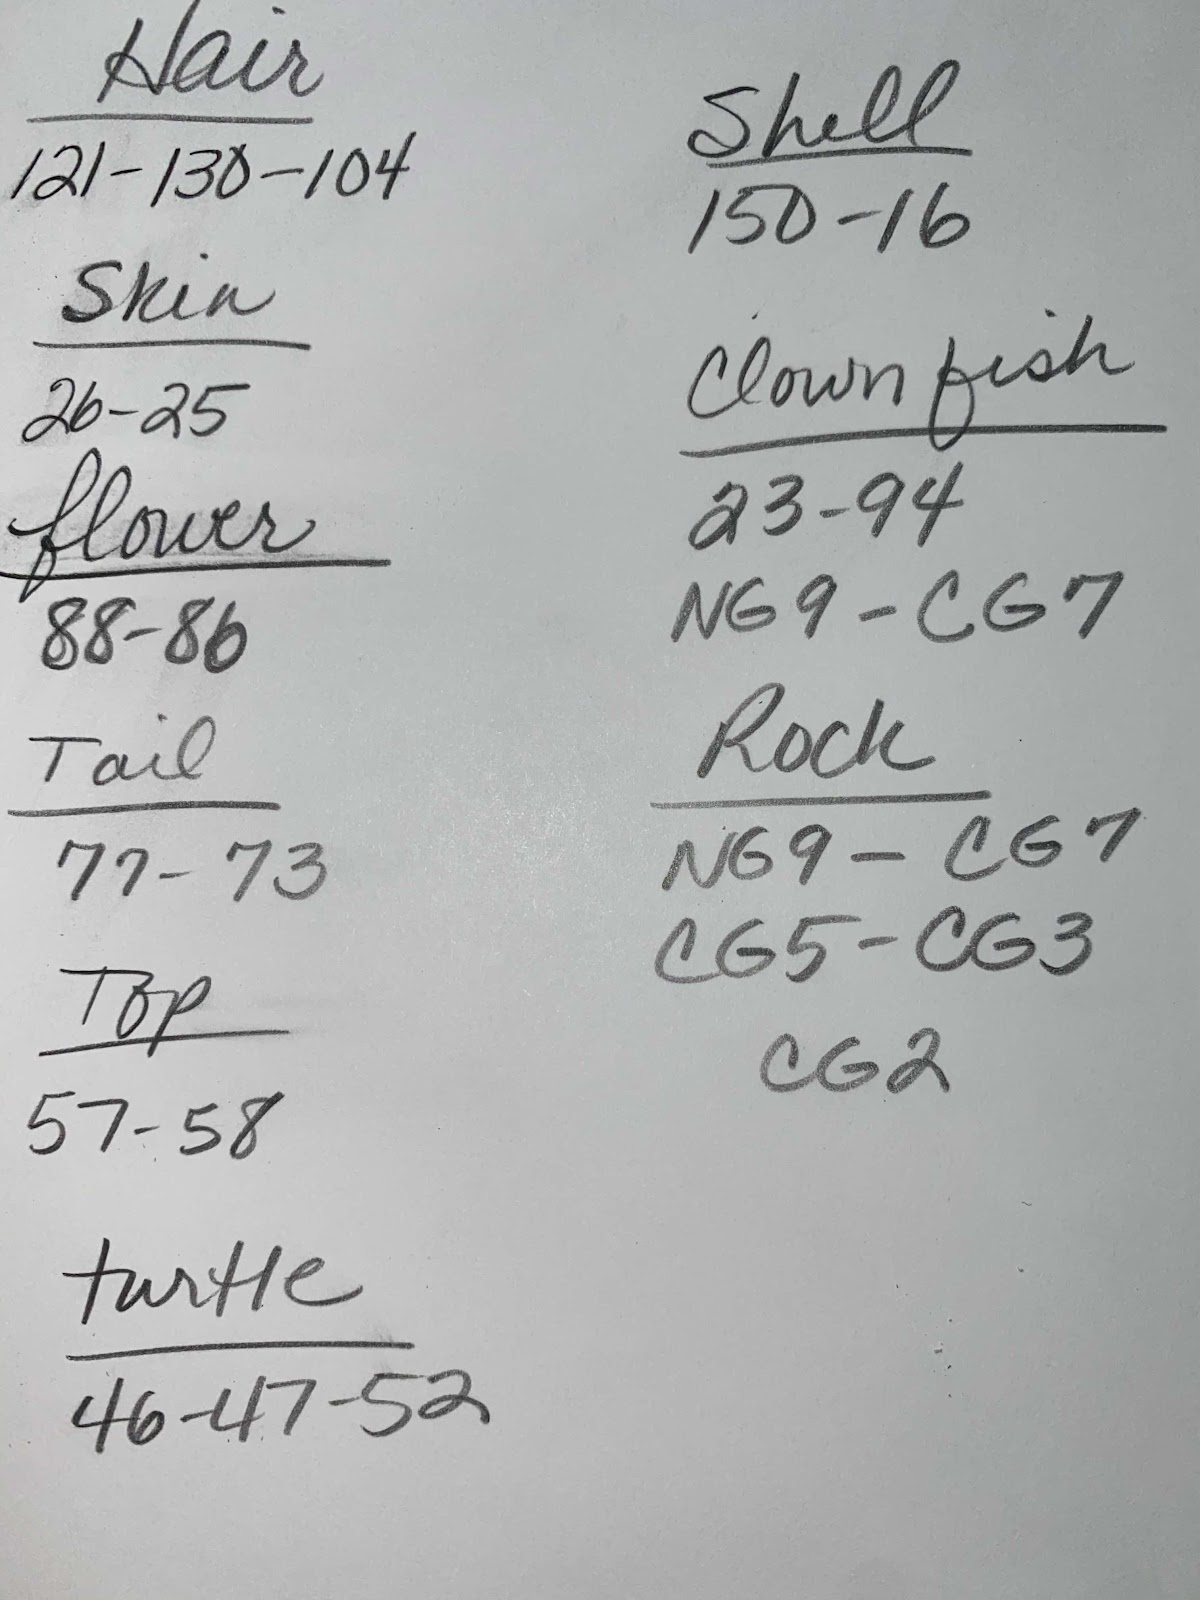 Hair
121-130-104
Skin
26-25
flower
88-86
Tail
77-73
Top
57-58
turtle
46-47-52
Shell
150-16
Clown fish
23-94
NG9-CG7
Rock
NG9-CG7
CG5-CG3
CG2